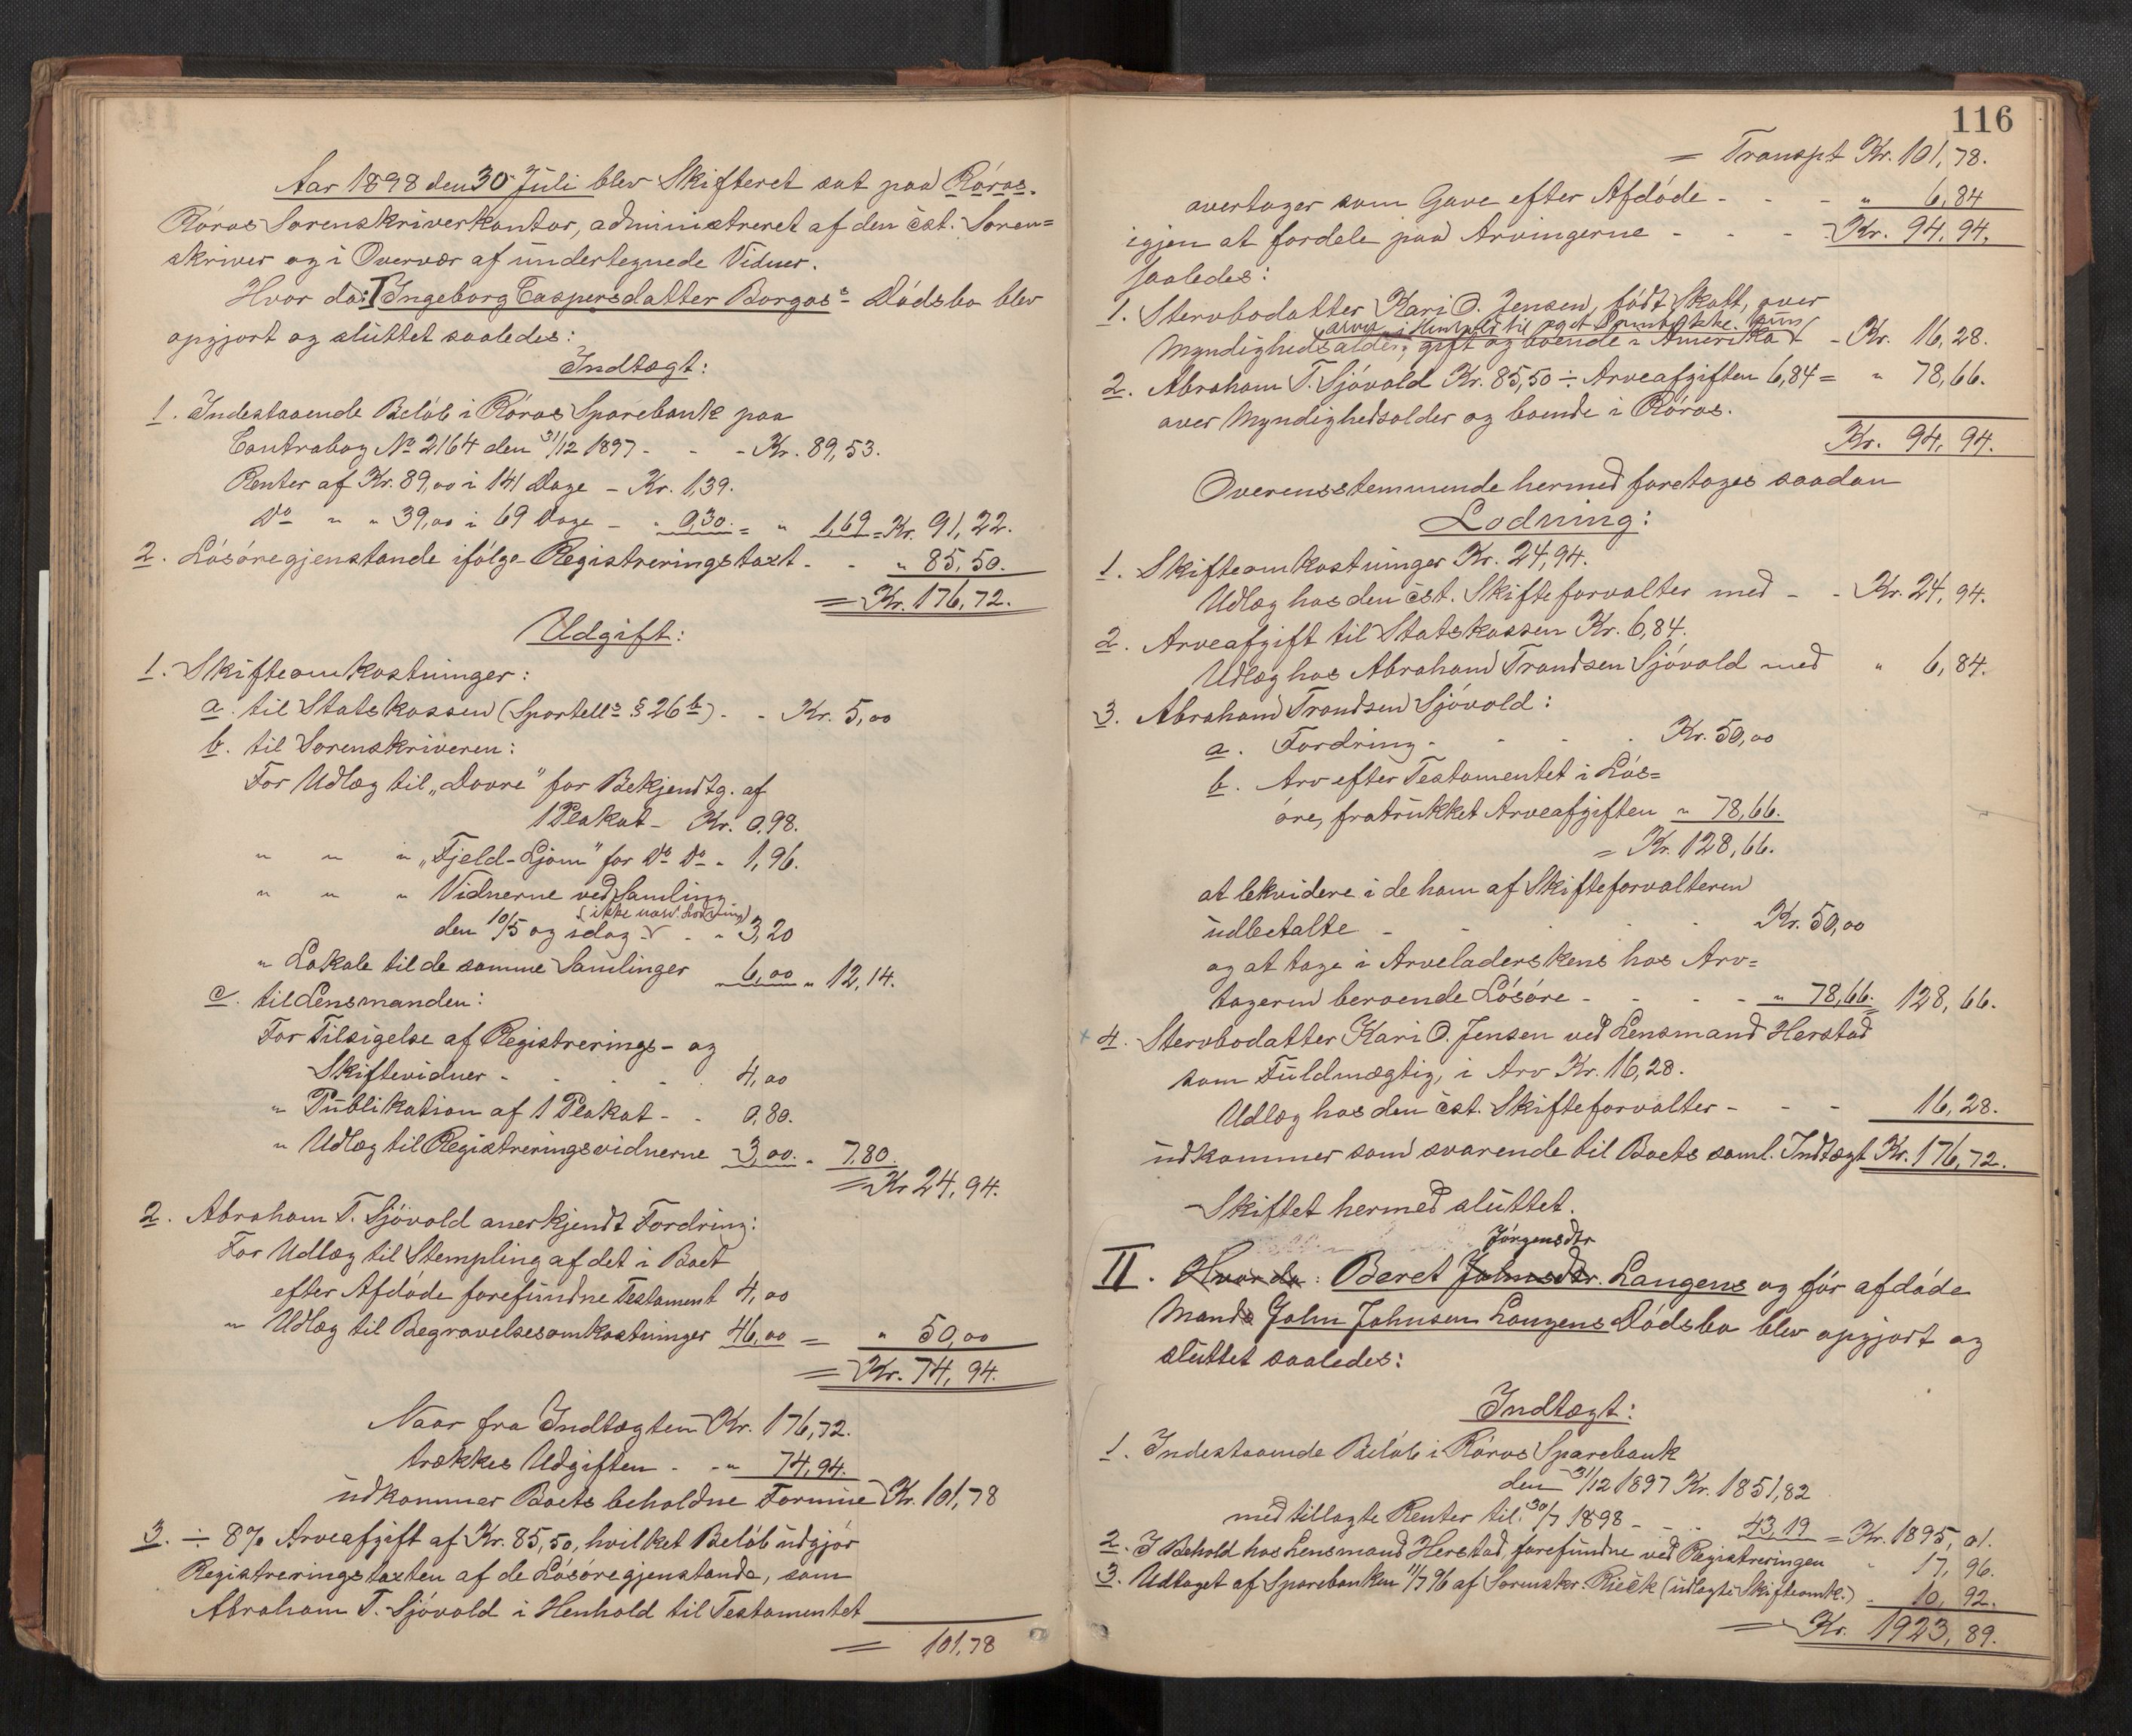 Aar 1898 den 30 Juli blev Skifteret sat paa Röros.
Röros Sorenskriverkontor, administreret af den cst. Soren=
skriver og i Overvær af undertegnede Vidner.
Hvor da: I Ingeborg Caspersdatter Borgos's Dödsbo blev
opgjort og sluttet saaledes:
Indtægt:
1. Indestaaende Belöb i Röros Sparebank paa
Contrabog No 2164 den 31/12 1897 - - - Kr. 89,53.
Renter af Kr. 89,00 i 141 Dage - Kr. 1,39.
Do " " 39,00 i 69 Dage - " 0,30. = " 1,69 = Kr. 91,22.
2. Lösöregjenstande ifölge Registreringstaxt - - " 85,50.
= Kr. 176,72.
Udgift:
1. Skifteomkostninger:
a. til Statskassen (Sportell's § 26 b) - - Kr. 5,00
b. til Sorenskriveren:
For Udlæg til „Dovre" for Bekjendtg. af
1 Plakat - Kr. 0,98.
" " " „Fjeld-Ljom" for Do Do " 1,96.
" " " Vidnerne ved Samling
(ikke nær. Lodning)
den 10/5 og idag - - " 3,20
" Lokale til de samme Samlinger " 6,00 " 12,14.
c. til Lensmanden:
For Tilsigelse af Registrerings- og
Skiftevidner - - - - 4,00
" Publikation af 1 Plakat - - 0,80.
" Udlæg til Registreringsvidnerne 3,00. " 7,80.
= Kr 24,94.
2. Abraham T. Sjövold anerkjendt Fordring:
For Udlæg til Stempling af det i Boet
efter Afdöde forefundne Testament 4,00
" Udlæg til Begravelsesomkostninger 46,00 = " 50,00
= Kr. 74,94.
Naar fra Indtægten Kr. 176,72.
trækkes Udgiften - - " 74,94.
udkommer Boets beholdne Formue Kr. 101,78
3. ÷ 8% Arveafgift af Kr. 85,50, hvilket Belöb udgjör
Registreringstaxten af de Lösöregjenstande, som
Abraham T. Sjövold i Henhold til Testamentet
= 101,78
116
= Transpt Kr. 101,78.
overtager som Gave efter Afdöde - - - " 6,84
igjen at fordele paa Arvingerne - - - Kr. 94,94.
saaledes:
1. Stervbodatter Kari O. Jensen, födt Skott, over
arver i Henhold til
Myndighedsalder, gift og boende i Amerika - Kr. 16,28.
2. Abraham T. Sjövold Kr. 85,50 ÷ Arveafgiften 6,84 = " 78,66.
over Myndighedsalder og boende i Röros.
Kr. 94,94.
Overensstemmende hermed foretages saadan
Lodning:
1. Skifteomkostninger Kr. 24,94.
Udlæg hos den cst. Skifteforvalter med - - Kr. 24,94.
2. Arveafgift til Statskassen Kr. 6,84.
Udlæg hos Abraham Trondsen Sjövold med " 6,84.
3. Abraham Trondsen Sjövold:
a. Fordring - - - - Kr. 50,00
b. Arv efter Testamentet i Lös=
öre, fratrukket Arveafgiften " 78,66.
= Kr. 128,66.
at lekvidere i de ham af Skifteforvalteren
udbetalte - - - - Kr. 50,00
og at tage i Arveladerskens hos Arv=
tageren beroende Lösöre - - - - " 78,66. = 128,66.
4. Stervbodatter Kari O. Jensen ved Lensmand Herstad
som Fuldmægtig, i Arv Kr. 16,28.
Udlæg hos den cst. Skifteforvalter - - - 16,28.
udkommer som svarende til Boets saml. Indtægt Kr. 176,72.
Skiftet hermed sluttet.
Jörgensdtr
II. Hvor da: Beret Johnsdtr. Langens og för afdöde
Mands John Johnsen Langens Dödsbo blev opgjort og
sluttet saaledes:
Indtægt:
1. Indestaaende Belöb i Röros Sparebank
den 31/12 1897 Kr. 1851,82
med tillagte Renter til 30/7 1898 - - - 43,19 = Kr. 1895,01.
2. I Behold hos Lensmand Herstad, forefundne ved Registreringen " 17,96.
3. Udtaget af Sparebanken 11/7 96 af Sorenskr. Rieck (udlagte Skifteomk.) " 10,92.
= Kr. 1923,89.